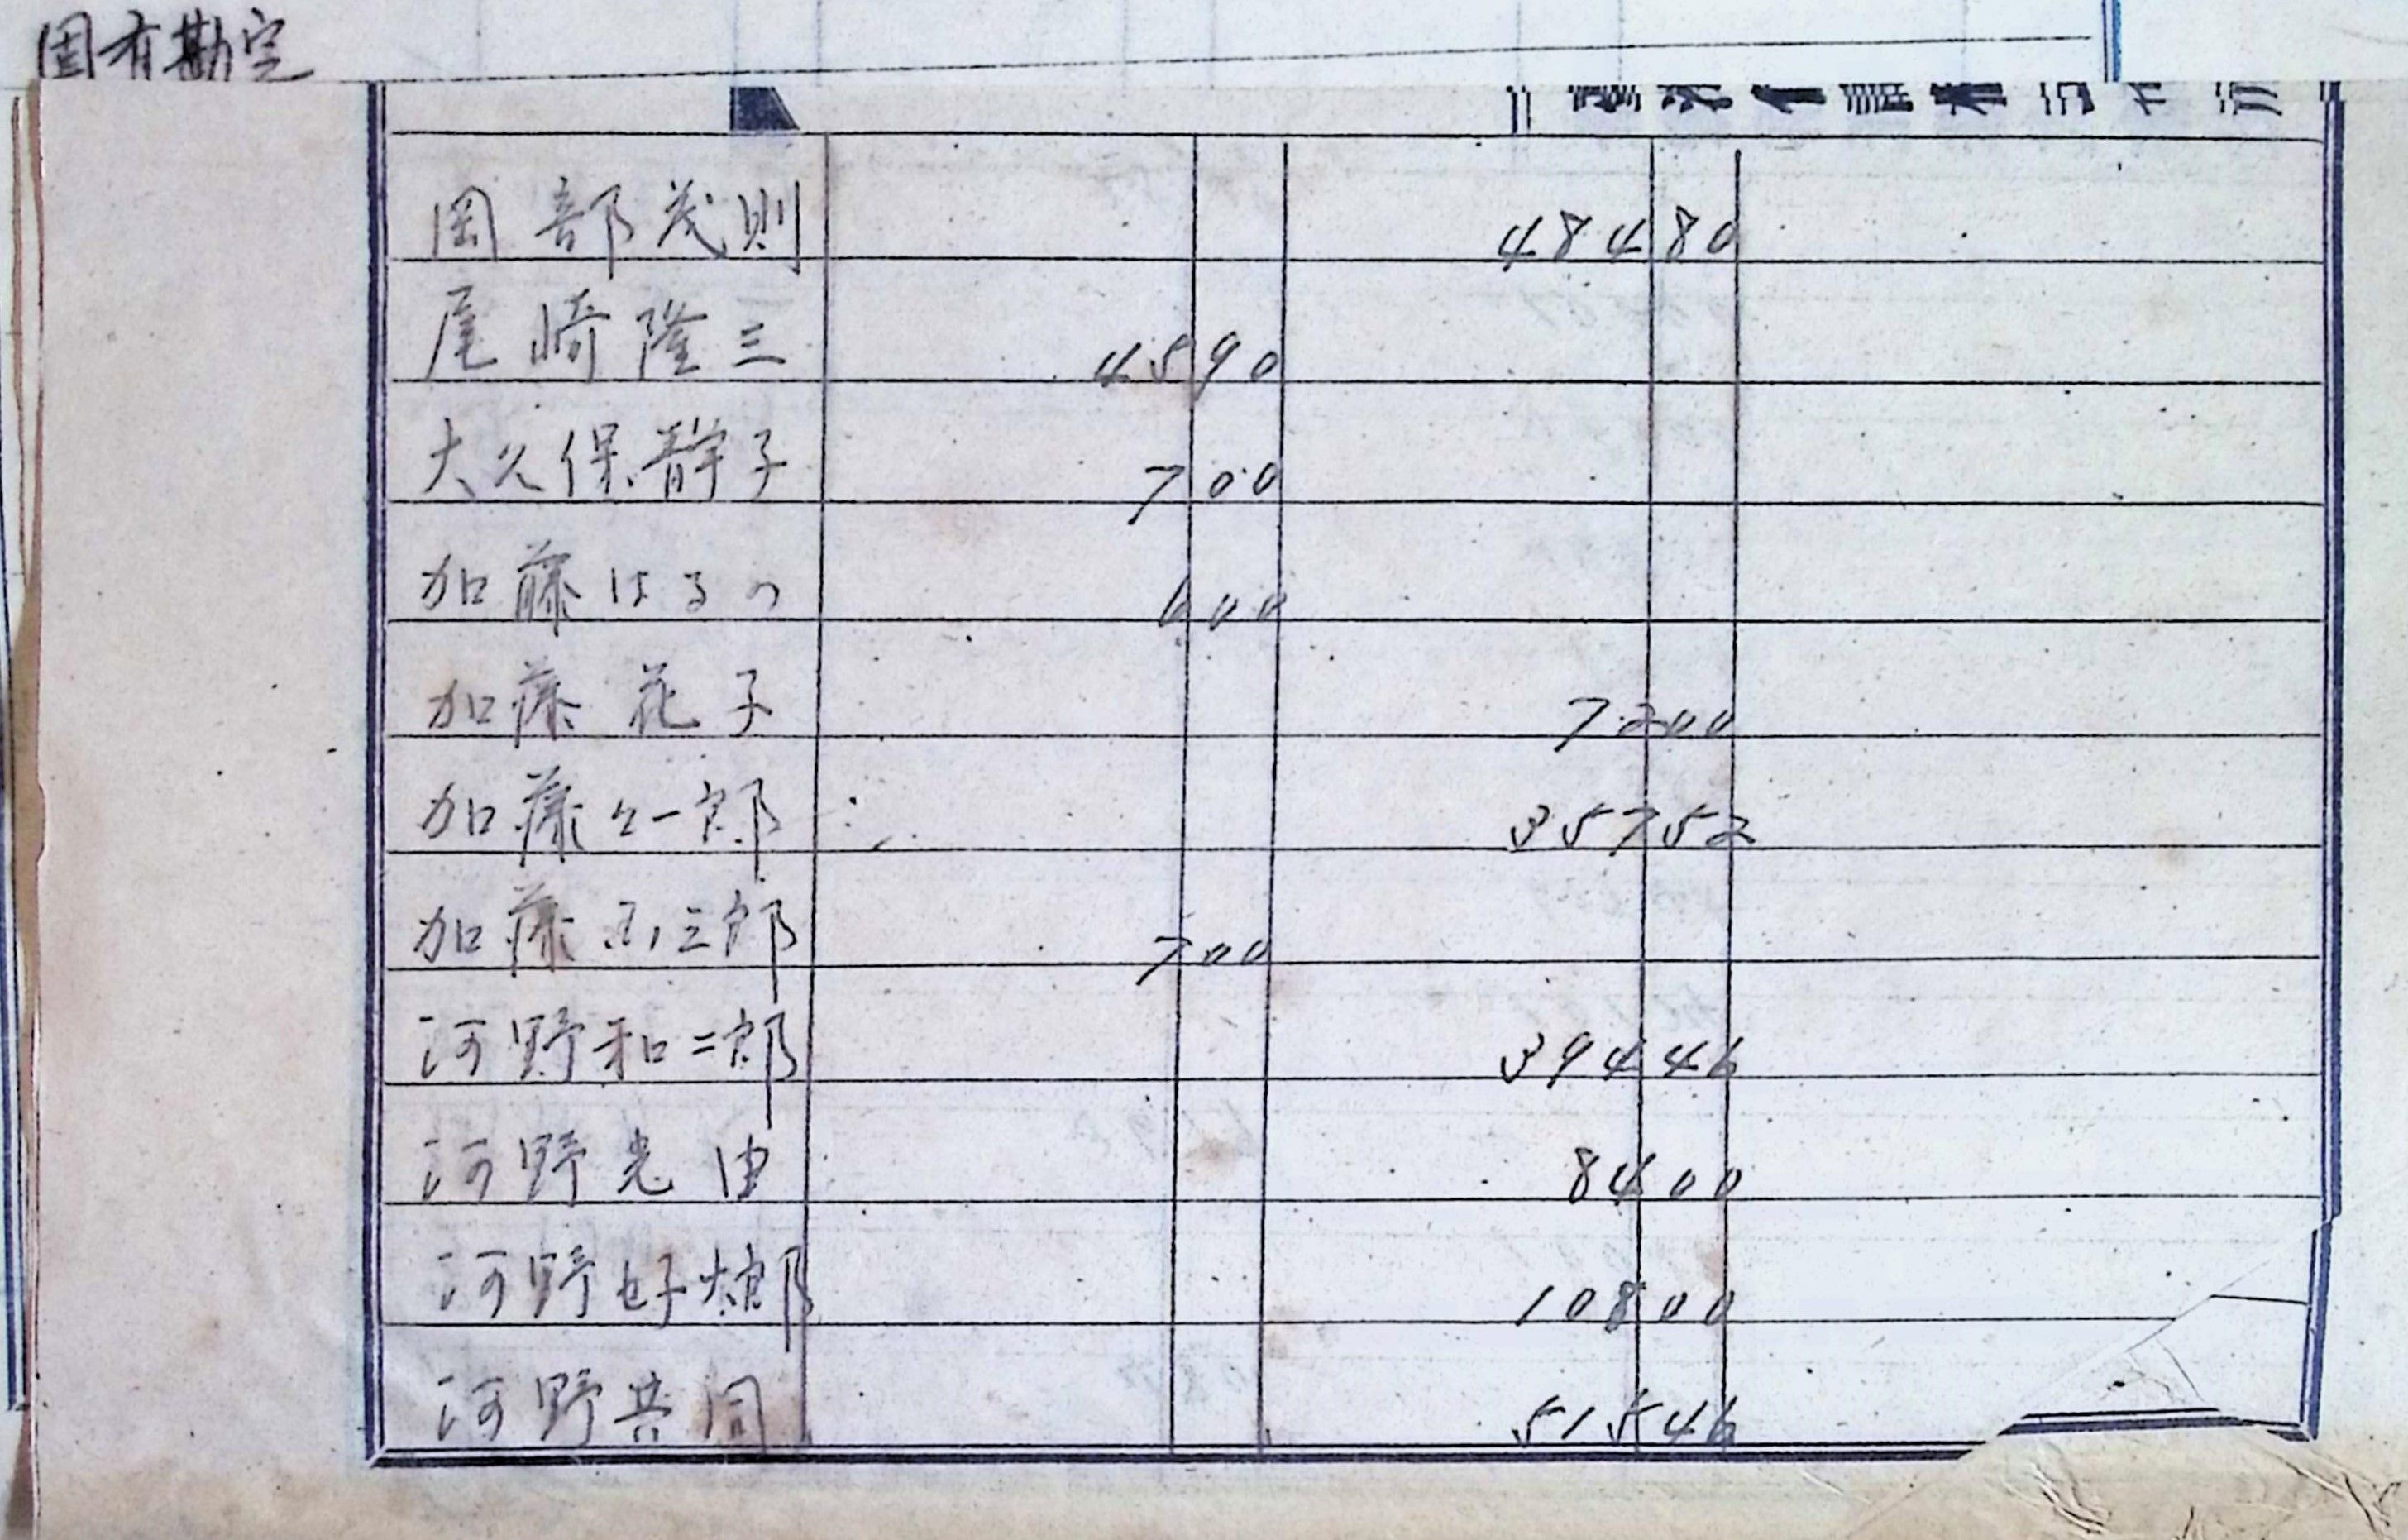 固有勘定
岡部茂則 48480
尾崎隆三 4590
大久保静子 700
加藤はるの 600
加藤花子 7200
加藤 一郎 35752
加藤 三郎 700
河野和二郎 39446
河野光由 8400
河野好太郎 10800
河野共同 51546